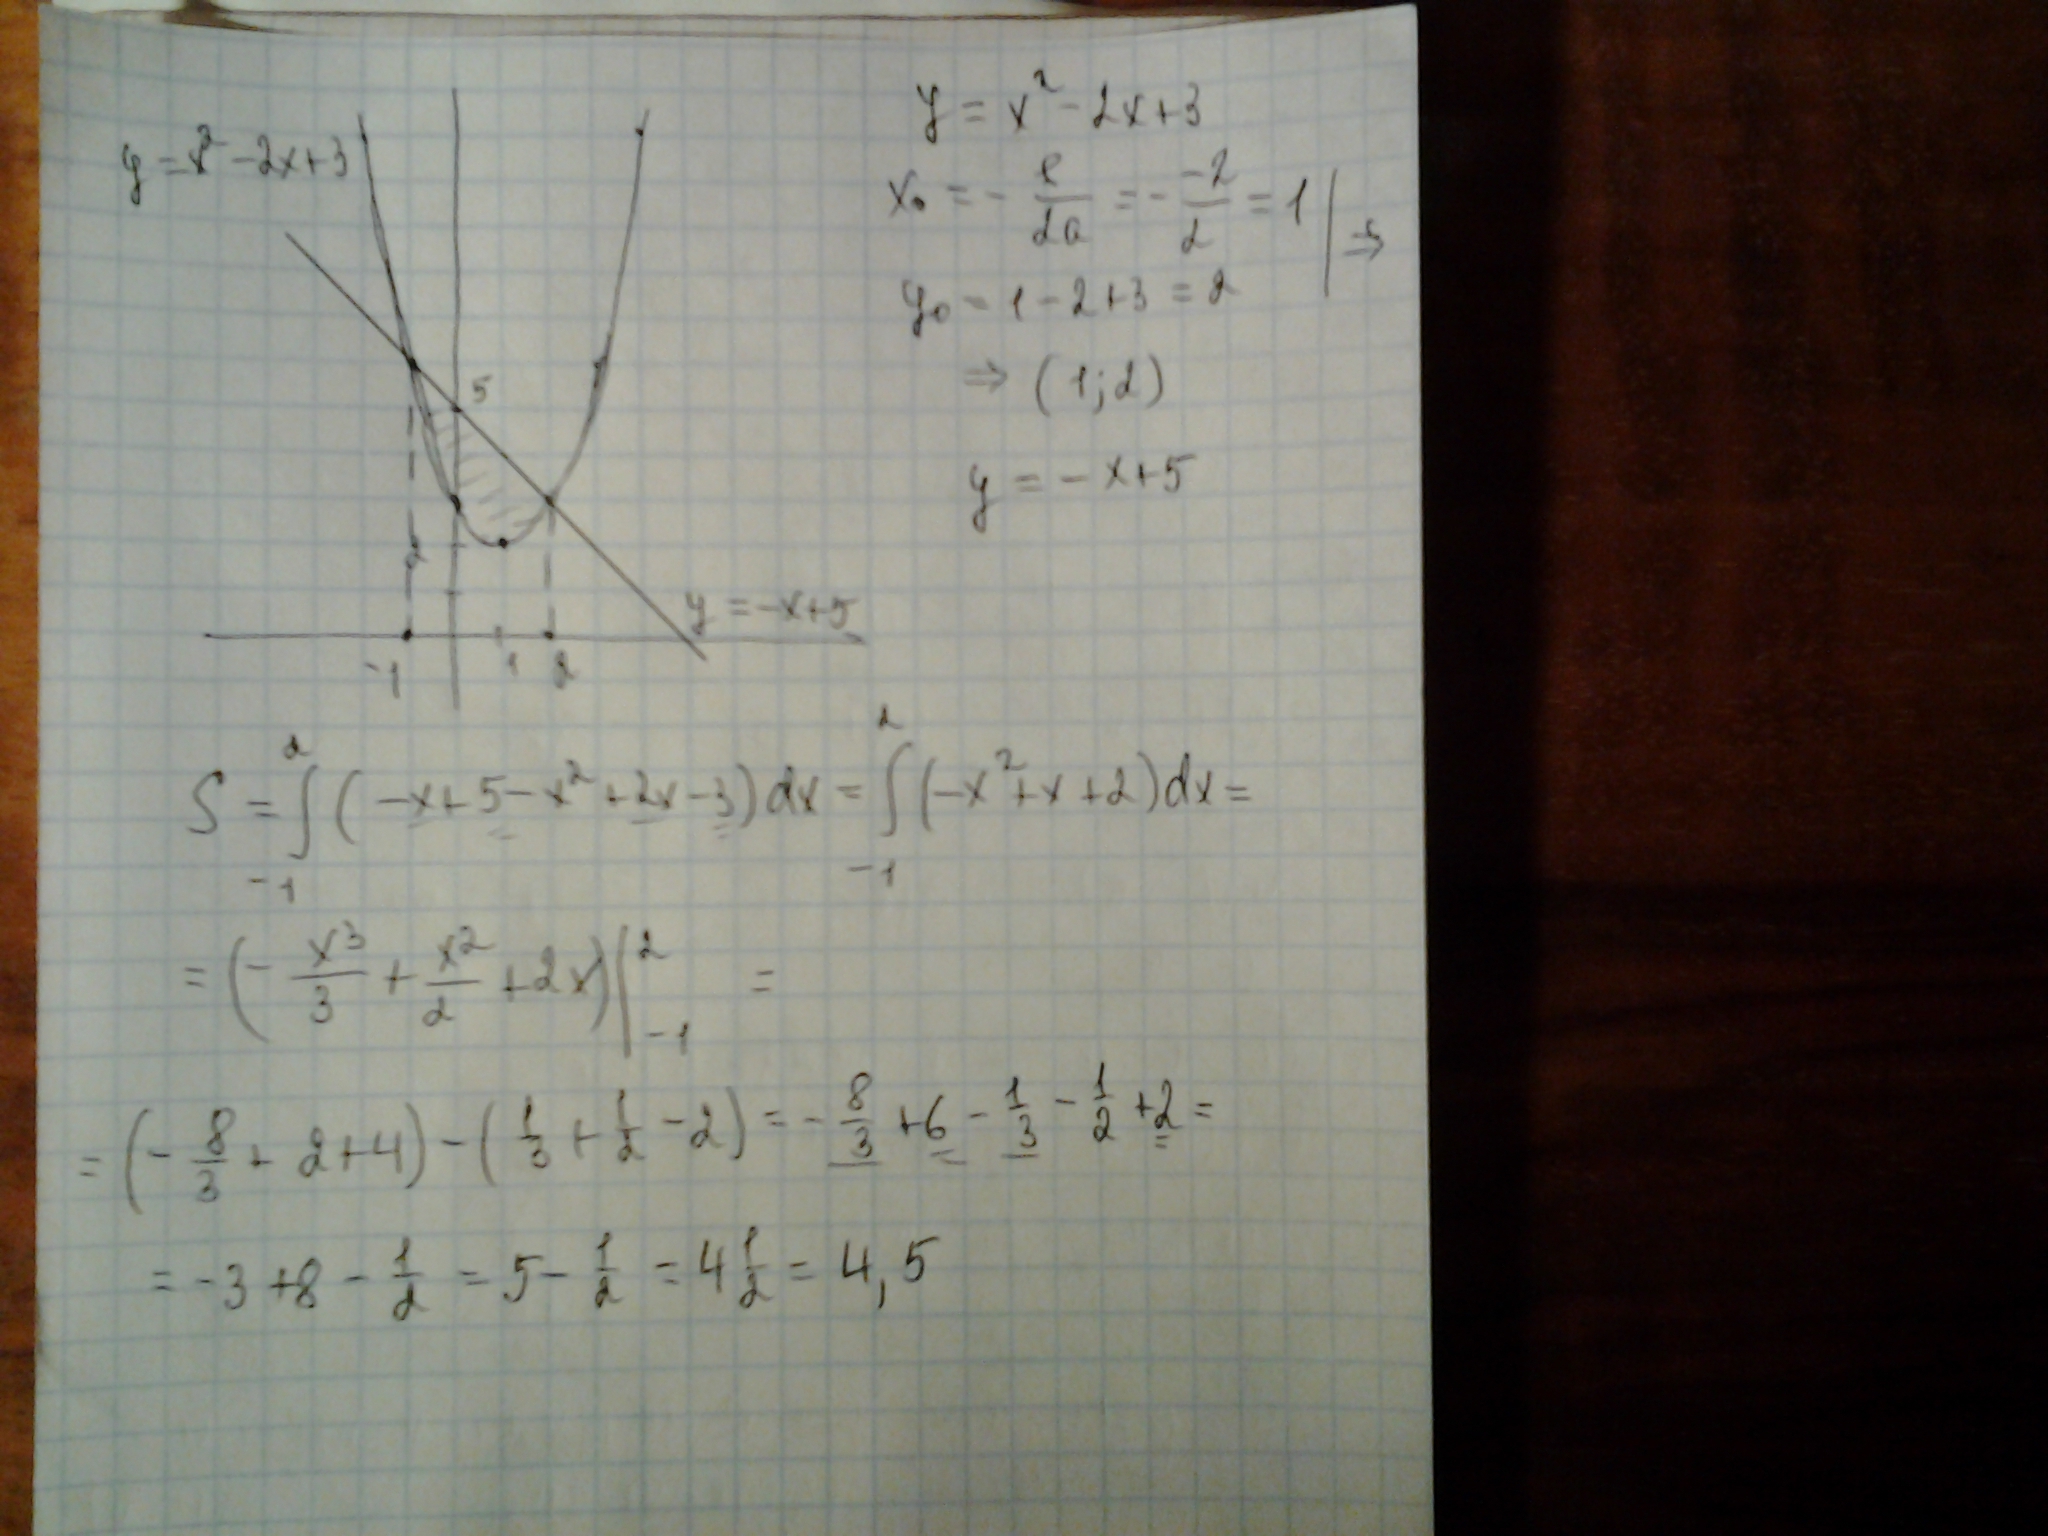 y = x² - 2x + 3
5
2
y = -x + 5
-1 1 2
y = x² - 2x + 3
x₀ = - в/2a = - -2/2 = 1 | ⇒
y₀ = 1 - 2 + 3 = 2
⇒ (1; 2)
y = - x + 5
S = ∫₋₁² (-x + 5 - x² + 2x - 3) dx = ∫₋₁² (-x² + x + 2) dx =
= (- x³/3 + x²/2 + 2x) |₋₁² =
= (- 8/3 + 2 + 4) - (1/3 + 1/2 - 2) = - 8/3 + 6 - 1/3 - 1/2 + 2 =
= -3 + 8 - 1/2 = 5 - 1/2 = 4 1/2 = 4,5